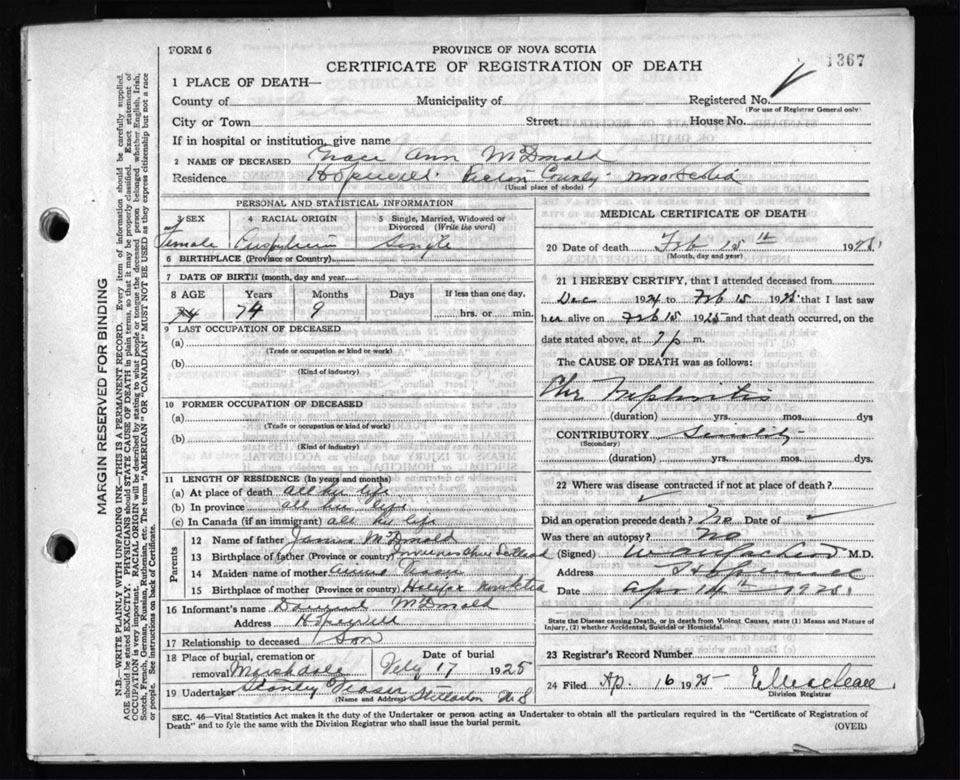 FORM 6
PROVINCE OF NOVA SCOTIA
CERTIFICATE OF REGISTRATION OF DEATH
1367
1 PLACE OF DEATH—
County of Municipality of Registered No.
(For use of Registrar General only)
City or Town Street House No.
If in hospital or institution, give name
2 NAME OF DECEASED Grace Ann McDonald
Residence Hopewell Pictou County Nova Scotia
(Usual place of abode)
PERSONAL AND STATISTICAL INFORMATION
3 SEX 4 RACIAL ORIGIN 5 Single, Married, Widowed or Divorced (Write the word)
Female Single
6 BIRTHPLACE (Province or Country)
7 DATE OF BIRTH (month, day and year)
8 AGE Years Months Days If less than one day,
74 74 9 hrs. or min.
9 LAST OCCUPATION OF DECEASED
(a)
(Trade or occupation or kind or work)
(b)
(Kind of industry)
10 FORMER OCCUPATION OF DECEASED
(a)
(Trade or occupation or kind of work)
(b)
(Kind of industry)
11 LENGTH OF RESIDENCE (In years and months)
(a) At place of death all her life
(b) In province all her life
(c) In Canada (if an immigrant) all her life
Parents
12 Name of father James McDonald
13 Birthplace of father (Province or country) Scotland
14 Maiden name of mother
15 Birthplace of mother (Province or country) Halifax
16 Informant's name McDonald
Address Hopewell
17 Relationship to deceased Son
18 Place of burial, cremation or removal Date of burial
17 1925
19 Undertaker Stanley Fraser Stellarton N S
(Name and Address)
MEDICAL CERTIFICATE OF DEATH
20 Date of death Feb 15th 1925
(Month, day and year)
21 I HEREBY CERTIFY, that I attended deceased from
Dec 1924 to Feb 15 1925 that I last saw
her alive on Feb 15 1925 and that death occurred, on the
date stated above, at 7 p m.
The CAUSE OF DEATH was as follows:
Chr Nephritis
(duration) yrs. mos. dys
CONTRIBUTORY Senility
(Secondary)
(duration) yrs. mos. dys.
22 Where was disease contracted if not at place of death?
Did an operation precede death? No Date of
Was there an autopsy? No
(Signed) M.D.
Address Hopewell
Date Apr 14th 1925
State the Disease causing Death, or in death from Violent Causes, state (1) Means and Nature of Injury, (2) whether Accidental, Suicidal or Homicidal.
23 Registrar's Record Number
24 Filed Ap. 16 1925
Division Registrar
SEC. 46—Vital Statistics Act makes it the duty of the Undertaker or person acting as Undertaker to obtain all the particulars required in the "Certificate of Registration of
Death" and to fyle the same with the Division Registrar who shall issue the burial permit.
(OVER)
MARGIN RESERVED FOR BINDING
N.B.—WRITE PLAINLY WITH UNFADING INK—THIS IS A PERMANENT RECORD. Every item of information should be carefully supplied.
AGE should be stated EXACTLY. PHYSICIANS should STATE CAUSE OF DEATH in plain terms, so that it may be properly classified. Exact statement of
OCCUPATION is very important. RACIAL ORIGIN will be described by stating to what people or tongue the deceased person belonged whether English, Irish,
Scotch, French, German, Russian, Ruthenian, etc. The terms "AMERICAN" OR "CANADIAN" MUST NOT BE USED as they express citizenship but not a race
or people. See instructions on back of Certificate.